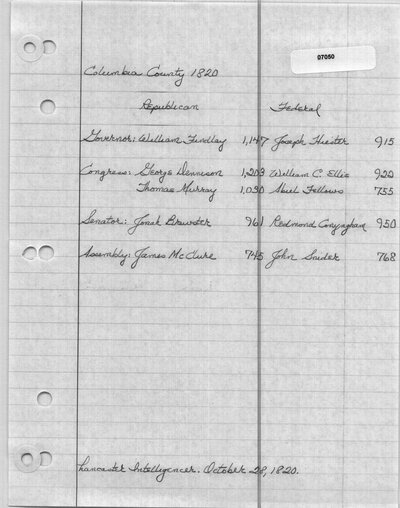 07050
Columbia County 1820
Republican Federal
Governor: William Findlay 1,147 Joseph Hiester 915
Congress: George Dennison 1,203 William C. Ellis 922
Thomas Murray 1,030 Abiel Fellows 755
Senator: Jonah Brewster 961 Redmond Conyngham 950
Assembly: James McClure 745 John Snider 768
Lancaster Intelligencer. October 28, 1820.